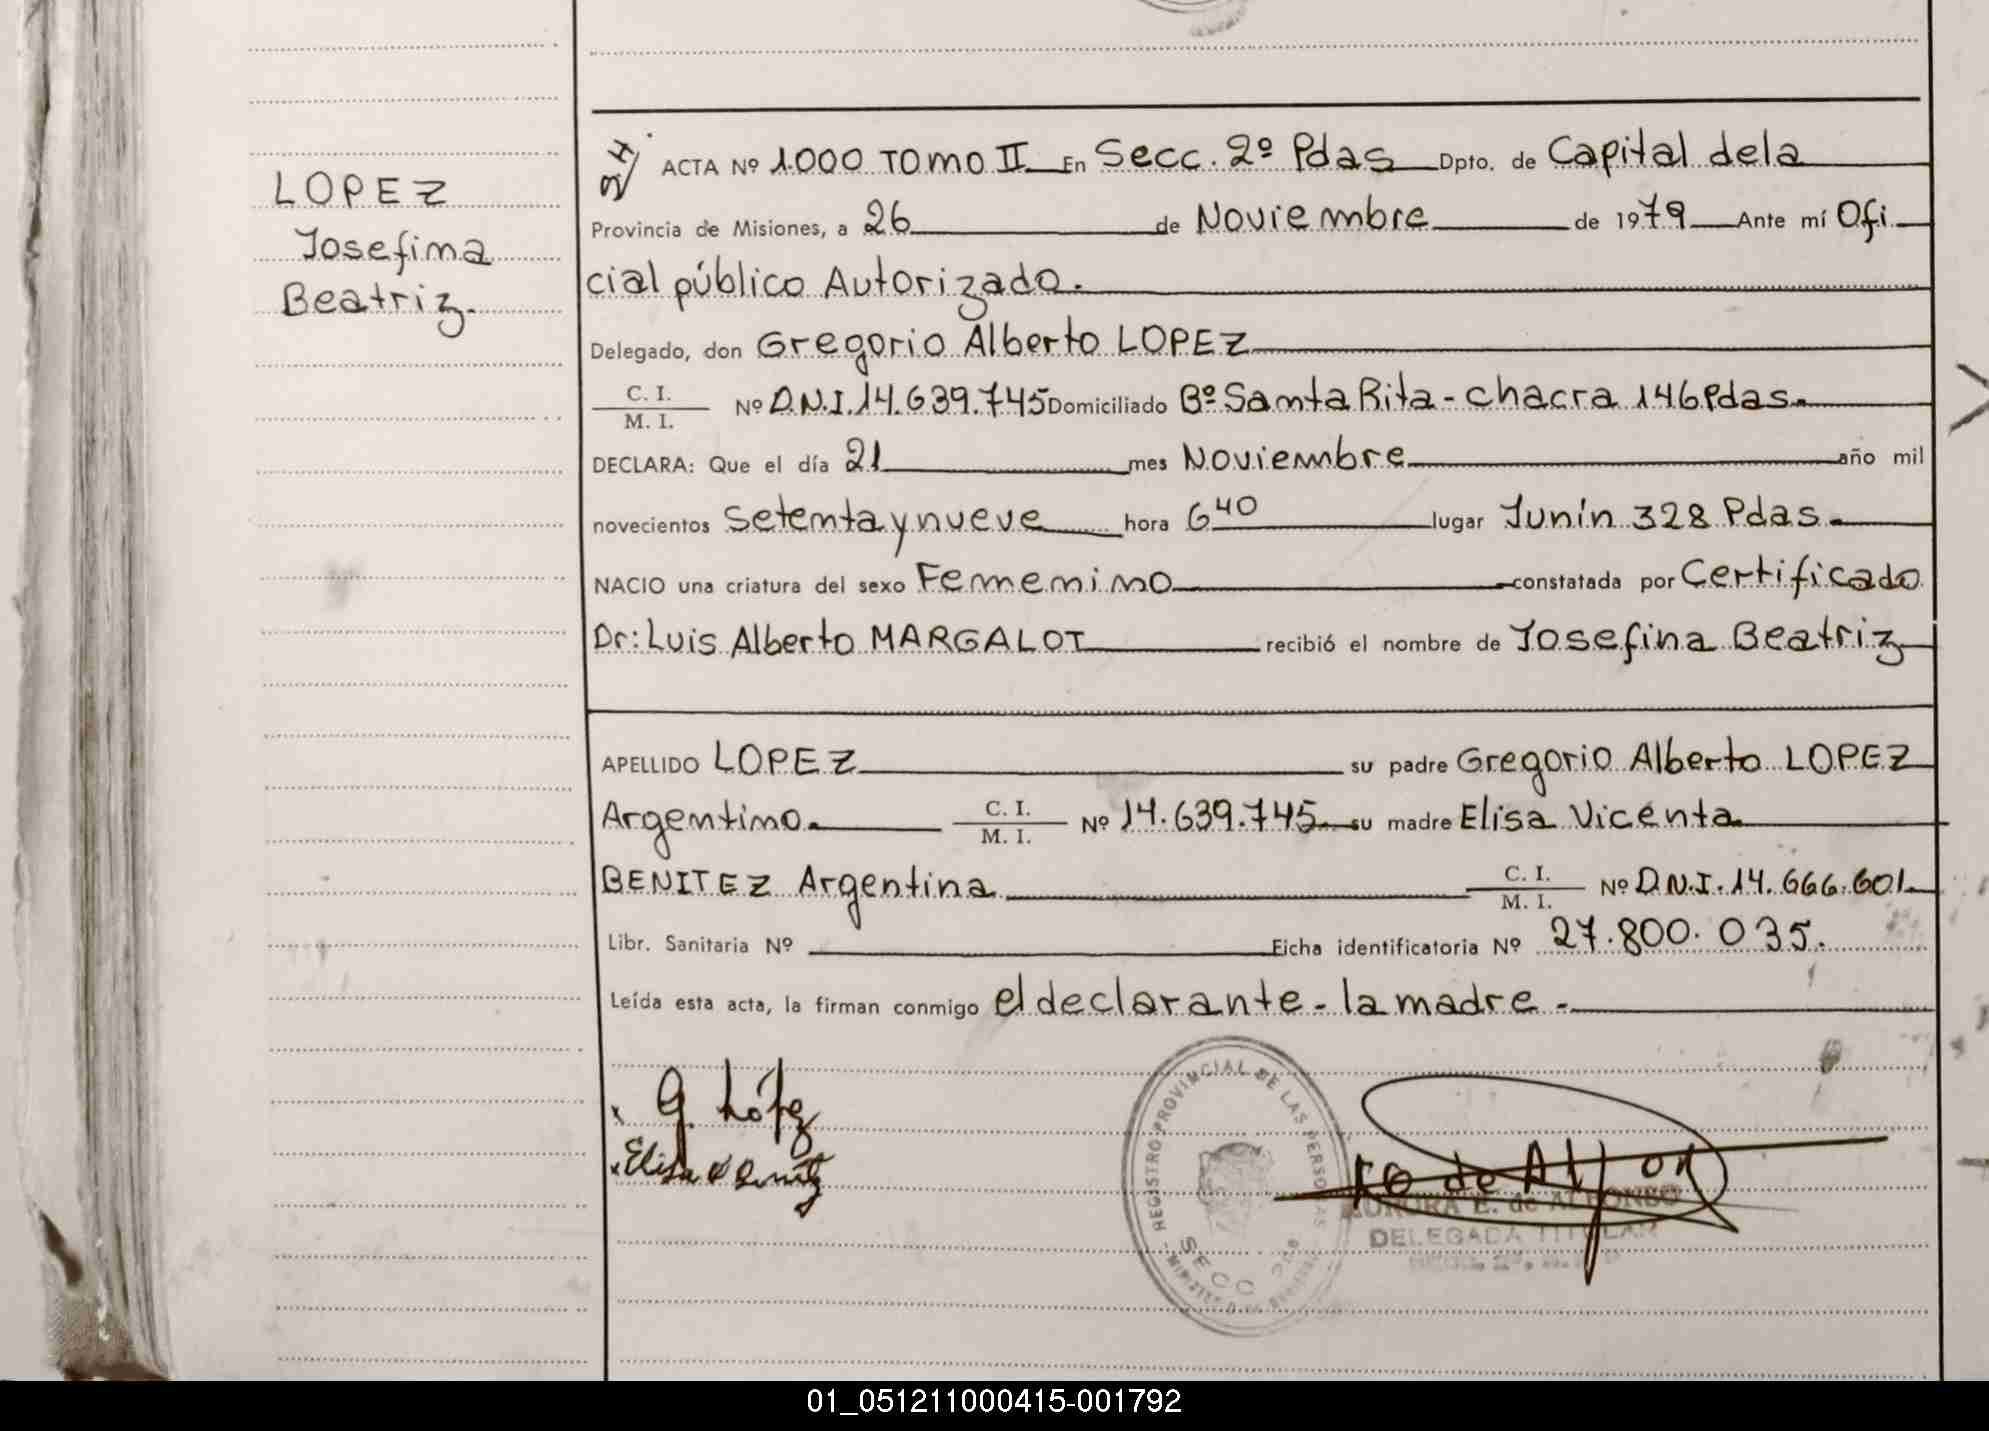 LOPEZ
Josefina
Beatriz.
ACTA Nº 1.000 TOMO II En Secc. 2º Pdas Dpto. de Capital dela
Provincia de Misiones, a 26 de Noviembre de 1979 Ante mí Ofi
cial público Autorizado.
Delegado, don Gregorio Alberto LOPEZ
C. I.
M. I. Nº D.N.I. 14.639.745 Domiciliado Bº Santa Rita - chacra 146 Pdas.
DECLARA: Que el día 21 mes Noviembre año mil
novecientos setenta y nueve hora 6 40 lugar Junín 328 Pdas.
NACIO una criatura del sexo Femenino constatada por Certificado
Dr: Luis Alberto MARGALOT recibió el nombre de Josefina Beatriz
APELLIDO LOPEZ su padre Gregorio Alberto LOPEZ
Argentino. C. I.
M. I. Nº 14.639.745 su madre Elisa Vicenta
BENITEZ Argentina C. I.
M. I. Nº D.N.I. 14.666.601
Libr. Sanitaria Nº Ficha identificatoria Nº 27.800.035.
Leída esta acta, la firman conmigo el declarante - la madre -
x G. López
x Elisa V Benitez
REGISTRO PROVINCIAL DE LAS PERSONAS
SECC
AURORA E. de ALFONSO
DELEGADA TITULAR
01_051211000415-001792